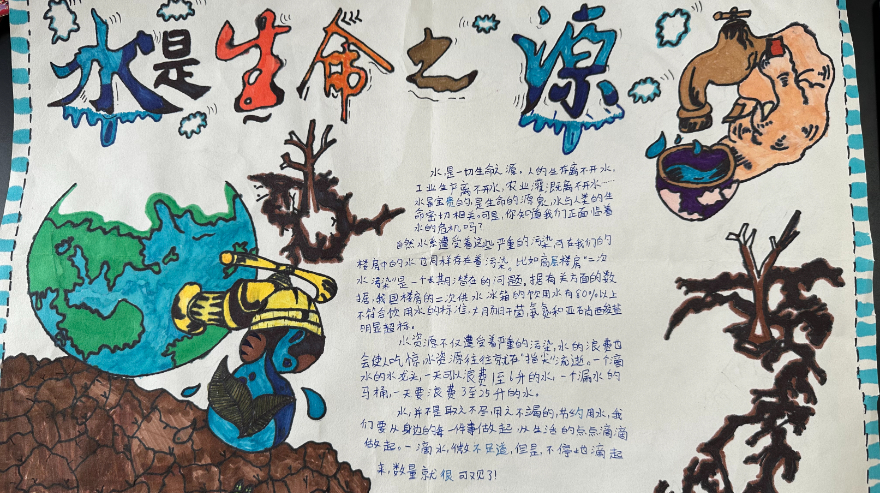 水是生命之源
水,是一切生命之源,人的生存离不开水,
工业生产离不开水,农业灌溉离不开水……
水是宝贵的,是生命的源泉,水与人类的生
命密切相关。可是,你知道我们正面临着
水的危机吗?
自然水系遭受着这些严重的污染,而在我们的
楼房中的水应同样存在着污染。比如高层楼房"二次
水污染"是一个长期潜在的问题,据有关方面的数
据,我国楼房的二次供水水箱的饮用水有60%以上
不符合饮用水的标准,大肠杆菌,氨氮和亚硝酸盐
明显超标。
水资源不仅遭受着严重的污染,水的浪费也
会使人吃惊,水资源往往就在"指尖"流逝。一个滴
水的水龙头,一天可以浪费1至6升的水,一个漏水的
马桶,一天要浪费3至25升的水。
水,并不是取之不尽,用之不竭的,节约用水,我
们要从身边的每一件事做起,从生活的点点滴滴
做起。一滴水,微不足道,但是,不停地滴起
来,数量就很可观了!